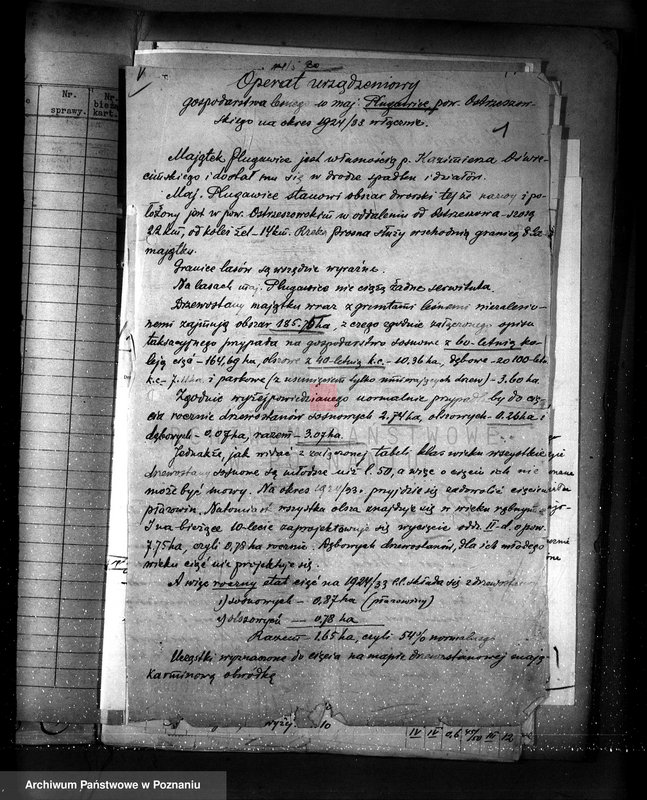 Nr.
sprawy.
Nr.
bież.
kart.
Operat urządzeniowy
gospodarstwa leśnego w maj. Pługawice pow. Ostrzeszow-
skiego na okres 1924/33 włącznie.
1
Majątek Pługawice jest własnością p. Kazimierza
i dostał mu się w drodze spadku i działów.
Maj. Pługawice stanowi obszar dworski tejże nazwy i po-
łożony jest w pow. Ostrzeszowskim w oddaleniu od Ostrzeszowa - szosą
22 km, od kolei żel. - 14 km. Rzeka Prosna służy wschodnią granicą
majątku.
Granice lasów są wszędzie wyraźne.
Na lasach maj. Pługawice nie ciążą żadne serwituta.
Drzewostany majątku wraz z gruntami leśnemi niezalesio-
nemi zajmują obszar 185.75 ha, z czego zgodnie załączonego opisu
taksacyjnego przypada na gospodarstwo sosnowe z 60-letnią ko-
leją cięć - 164,69 ha, olszowe z 40-letnią k.c. - 10,36 ha, dębowe - ze 100-letn.
k.c. - ha i parkowe (z usunięciem tylko umierających drzew) - 3.60 ha
Zgodnie wyżej powiedzianego normalnie przypadłoby do cię-
cia rocznie drzewostanów sosnowych 2,74 ha, olszowych - 0.26 ha i
dębowych - 0,07 ha, razem - 3.07 ha.
Jednakże, jak widać z załączonej tabeli klas wieku wszystkie
drzewostany sosnowe są młodsze niż l. 50, a więc o cięciu ich nie
może być mowy. Na okres 1924/33 r. przyjdzie się zadowolić cięciem
płazowin. Natomiast wszystka olsza znajduje się w wieku rębnym
i na bieżące 10-lecie zaprojektowuje się wycięcie odd. II-d. o pow.
7.75 ha, czyli 0,78 ha rocznie. Dębowych drzewostanów, dla ich młodego
wieku cięć nie projektuje się.
A więc roczny etat cięć na 1924/33 składa się z drzewostanów
1) sosnowych - 0,87 ha (płazowiny)
2) olszowych - 0,78 ha
Razem - 1.65 ha, czyli 54% normalnego
Cząstki wyznaczone do cięcia na mapie drzewostanowej mają
karminową obwódkę
wyżej
10
IV IV 0,6 III 12
PAŃSTWOWE
Archiwum Państwowe w Poznaniu